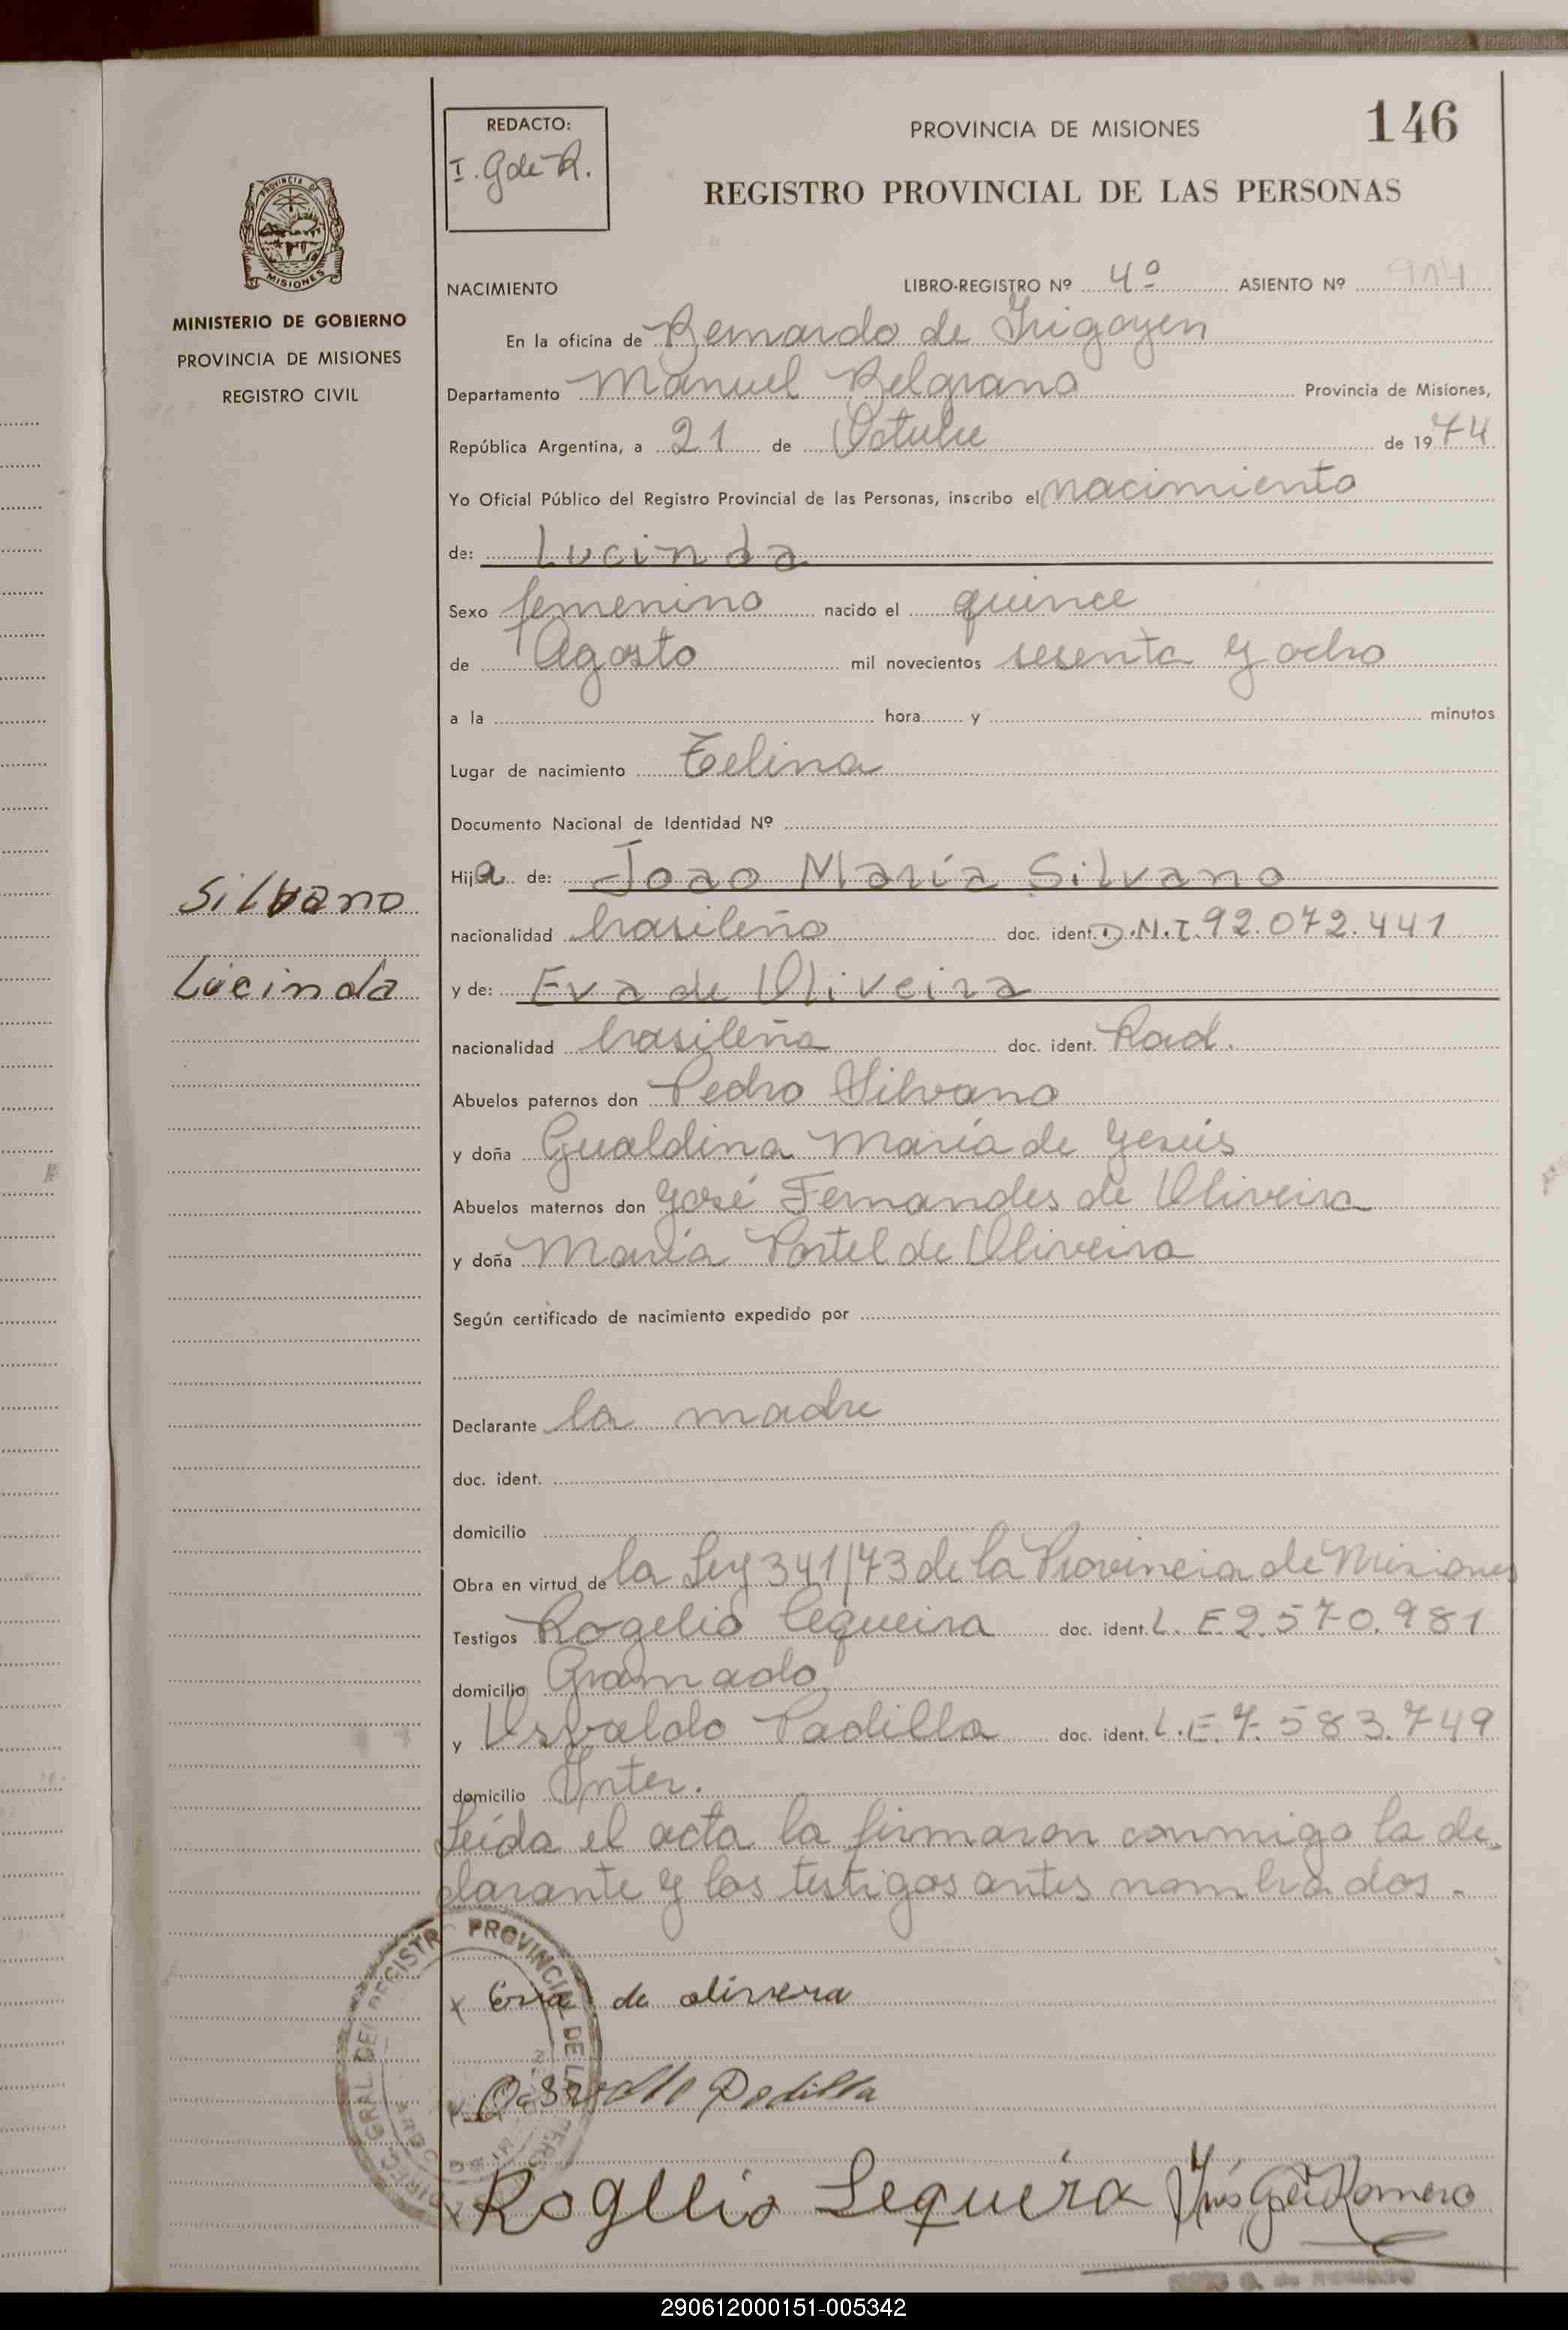 146
REDACTO:
I. G de R.
PROVINCIA DE MISIONES
REGISTRO PROVINCIAL DE LAS PERSONAS
MISIONES
MINISTERIO DE GOBIERNO
PROVINCIA DE MISIONES
REGISTRO CIVIL
NACIMIENTO LIBRO-REGISTRO Nº 4º ASIENTO Nº
En la oficina de Bernardo de Irigoyen
Departamento Manuel Belgrano Provincia de Misiones,
República Argentina, a 21 de Octubre de 1974
Yo Oficial Público del Registro Provincial de las Personas, inscribo el nacimiento
de: Lucinda
Sexo femenino nacido el quince
de Agosto mil novecientos sesenta y ocho
a la hora y minutos
Lugar de nacimiento
Documento Nacional de Identidad Nº
Hija de: Joao María Silvano
Silvano
nacionalidad brasileño doc. ident. D.N.I. 92.072.441
Lucinda
y de: Eva de Oliveira
nacionalidad brasileña doc. ident. Rad.
Abuelos paternos don Pedro Silvano
y doña Gualdina María de Jesús
Abuelos maternos don José Fernandes de Oliveira
y doña María Portel de Oliveira
Según certificado de nacimiento expedido por
Declarante la madre
doc. ident.
domicilio
Obra en virtud de la Ley 341/73 de la Provincia de Misiones
Testigos Rogelio Cequeira doc. ident. L.E 2.570.981
domicilio Gramado
y Osvaldo Padilla doc. ident. L.E. 7.583.749
domicilio Inter.
Leída el acta la firmaron conmigo la de-
clarante y los testigos antes nombrados.
x Eva de olivera
Osvaldo Padilla
x Rogelio Sequeira Inés G de Romero
290612000151-005342